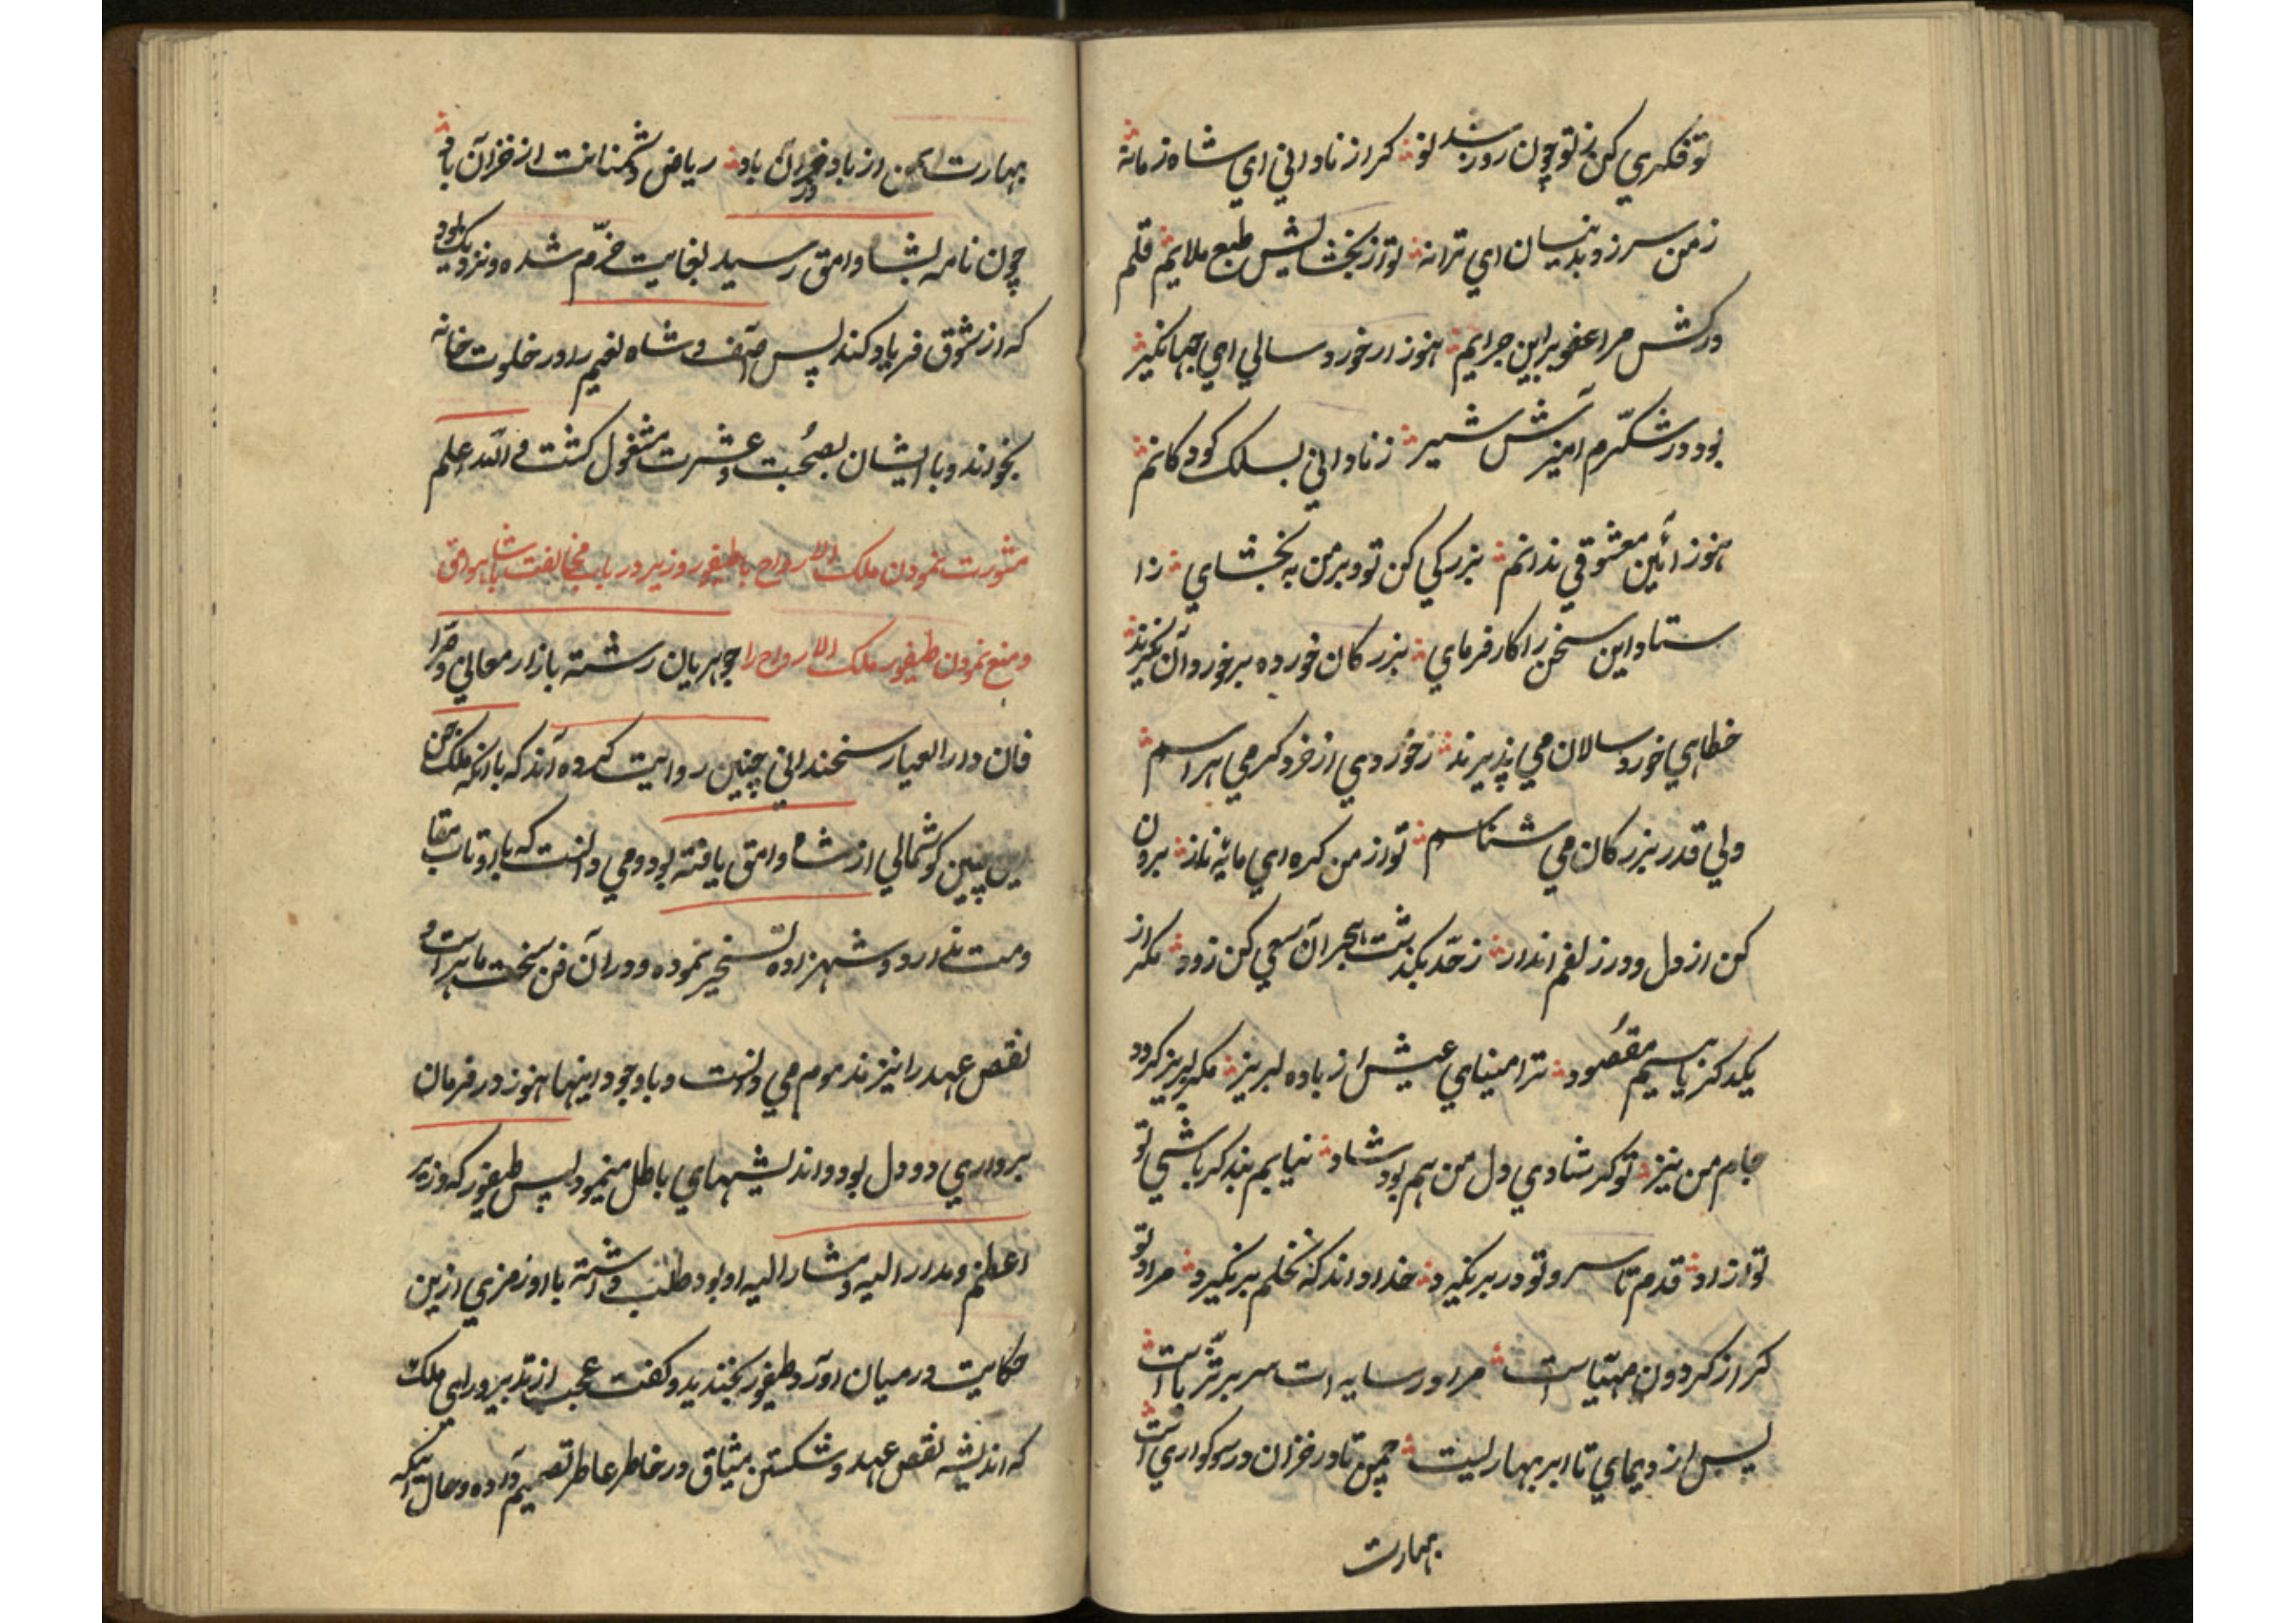 تو فکری کن ز تو چون روزبند نو کر از نادانی ای شاه زمانه
ز من سر زد بدینسان ای ترانه تو از بخشایش طبع ملایم قلم
درکش مرا عفو بر این جرایم هنوز از خورد سالی ای جهانگیر
بود در شکرم آمیزش شیر ز نادانی بسلک کودکانم
هنوز آئین معشوقی ندانم بزرکی کن تو و بر من ببخشای ز ا
ستاد این سخن را کار فرمای بزرکان خورده بر خوردان نکیرند
خطاهای خورد سالان می پذیرند ز خوردی از خرد کر می هراسم
ولی قدر بزرکان می شناسم تو از من کره ای مایه ناز برون
کن از دل و ورز لغم انداز ز حد بکذشت هجران سعی کن زود مکر از
یکدکر یابیم مقصود ترا مینای عیش از باده لبریز مکر لبریز کردد
جام من نیز تو کر شادی دل من هم بود شاد نیایم بند کر باشی تو
تو ازاد قدم تا سر و تو در بر نکیرد خداوندا که نخلم بر نکیرد مراد تو
کر از کردون مهیاست مرا در سایه ات سر بر ثریاست
پس از دیمای تا ابر بهاریست چمن تا در خزان در سوکواریست
بهارت
بهارت ایمن از باد خزان باد ریاض دشمنانت از خزان باد
چون نامه بشاه وامق رسید بغایت خرم شده و نزدیک بود
که از شوق فریاد کند پس آصف و شاه نعیم را در خلوت خانه
بخواند و با ایشان بصحبت و عشرت مشغول کشت و الله اعلم
مشورت نمودن ملک الارواح با طیفور وزیر در باب مخالفت با شاه وامق
و منع نمودن طیفور ملک الارواح را جوهریان رشته بازار معالی و صرا
فان دار العیار سخندانی چنین روایت کرده اند که با آنکه ملک جن
این چنین کوشمالی از شاه وامق یافته بود و می دانست که با او تاب مقا
ومت ندارد و شهزاده تسخیر نموده و در آن فن سخت ماهر است و
نقص عهد را نیز مذموم می دانست و با وجود اینها هنوز در فرمان
برداری دو دل بود و اندیشهای باطل مینمود پس طیفور که وزیر
اعظم و مدار الیه و مشار الیه او بود طلب داشته با او رمزی ازین
حکایت در میان آورد طیفور بخندید و کفت عجب از تدبیر و رای ملک
که اندیشه نقص عهد و شکستن میثاق در خاطر عاطر تصمیم آورده و حال آنیکه